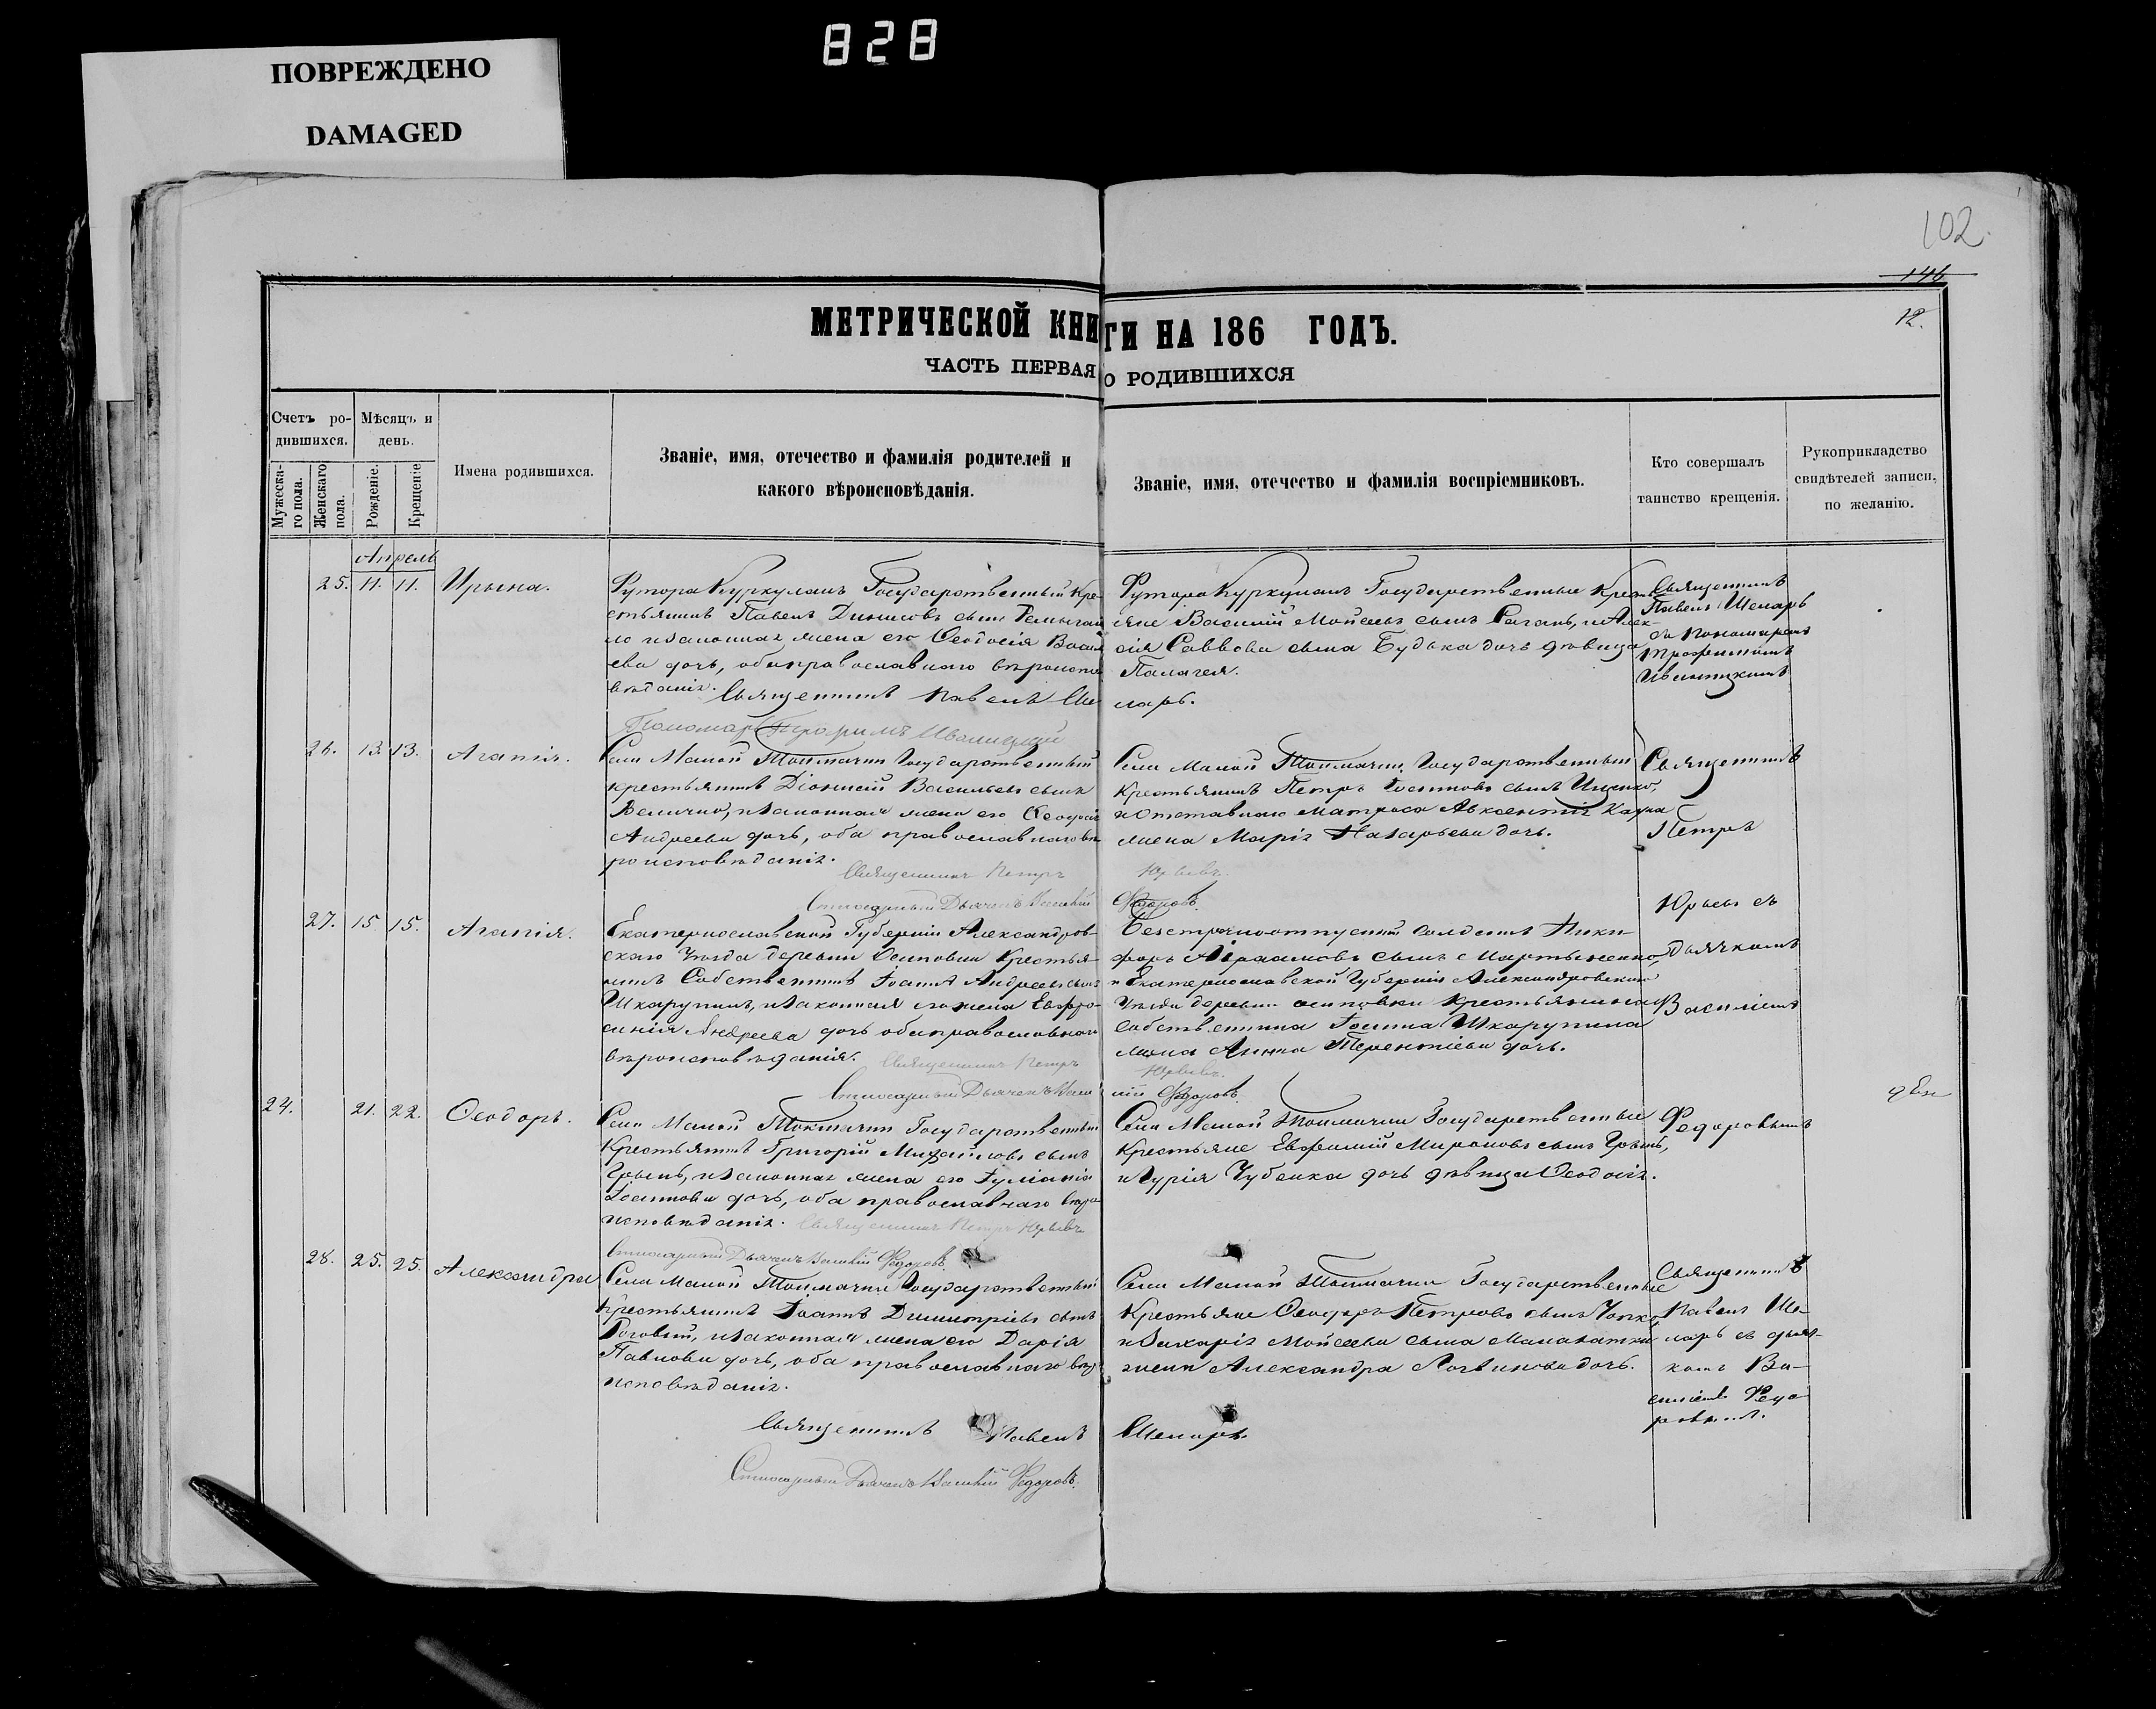 828
ПОВРЕЖДЕНО
DAMAGED
102.
146
12.
МЕТРИЧЕСКОЙ КНИГИ НА 186 ГОДЪ.
ЧАСТЬ ПЕРВАЯ О РОДИВШИХСЯ
Счетъ ро-
дившихся.
Мѣсяцъ и
день.
Мужеска-
го пола.
Женскаго
пола.
Рожденіе.
Крещеніе
Имена родившихся.
Званіе, имя, отечество и фамилія родителей и
какого вѣроисповѣданія.
Званіе, имя, отечество и фамилія воспріемниковъ.
Кто совершалъ
таинство крещенія.
Рукоприкладство
свидѣтелей записи,
по желанію.
Апрель
25. 11. 11. Ирына.
Футора Куркулакъ Государственный Кре-
стьянинъ Павелъ Динисовъ сынъ
и законная жена его Ѳеодосія
ева дочь, оба православнаго вѣроиспо
вѣданія. Священникъ Павелъ Ше
Пономарь Трофимъ Ивалицкій
Футора Куркулакъ Государственные Кресть
яне Василій Мойсеевъ сынъ Рагань, и Алек-
сія Саввова сына Будька дочь дѣвица
Палагея.
ларь.
Священникъ
Павелъ Шеларь
съ Пономаремъ
Трофимомъ
26. 13. 13. Агапія.
Села Малой Токмачки Государственный
крестьянинъ Діонисій Васильевъ сынъ
Величко, и законная жена его Ѳеодосія
Андреева дочь, оба православнаго вѣ
роисповѣданія.
Священникъ Петръ Юрьевъ.
Дьячекъ Василій Федоровъ.
Села Малой Токмачки Государственный
Крестьянинъ Петръ сынъ Ищенко,
и отставнаго матроса Авксентія
жена Марія Назарьева дочь.
Священникъ
Петръ
Юрьевъ съ
дьячкомъ
Василіемъ
Федоровымъ
27. 15. 15. Агапія.
Екатеринославской Губерніи Александров-
скаго Уѣзда деревни Осиповки Крестья-
нинъ Собственникъ Іоаннъ Андреевъ сынъ
Шкарупинъ, и законная его жена Евфро-
синія Андреева дочь оба православнаго
вѣроисповѣданія. Священникъ Петръ Юрьевъ.
Дьячекъ Василій Федоровъ.
Безсрочноотпускной Солдатъ Ники-
форъ Авраамовъ сынъ Мартыненко,
и Екатеринославской Губерніи Александровскаго
Уѣзда деревни осиповки Крестьянина
Собственника Іоанна Шкарупина
жена Анна Терентіева дочь.
24. 21. 22. Ѳеодоръ.
Села Малой Токмачки Государственный
Крестьянинъ Григорій Михайловъ сынъ
и законная жена его Іуліанія
дочь, оба православнаго вѣро
исповѣданія. Священникъ Петръ Юрьевъ
Дьячекъ Василій Федоровъ.
Села Малой Токмачки Государственные
Крестьяне Евфимій Мироновъ сынъ
и Гурія Чубенка дочь дѣвица Ѳеодосія.
28. 25. 25. Александра
Села Малой Токмачки Государственный
Крестьянинъ Іоаннъ Димитріевъ сынъ
Роговый, и законная жена его Дарія
Павлова дочь, оба православнаго вѣро
исповѣданія.
Священникъ Павелъ Шеларь.
Дьячекъ Василій Федоровъ.
Села Малой Токмачки Государственные
Крестьяне Ѳеодоръ Петровъ сынъ
и Захарія Мойсеева сына
жена Александра Логвинова дочь.
Священникъ
Павелъ Ше-
ларь съ дьяч-
комъ Ва-
силіемъ Федо
ровымъ.